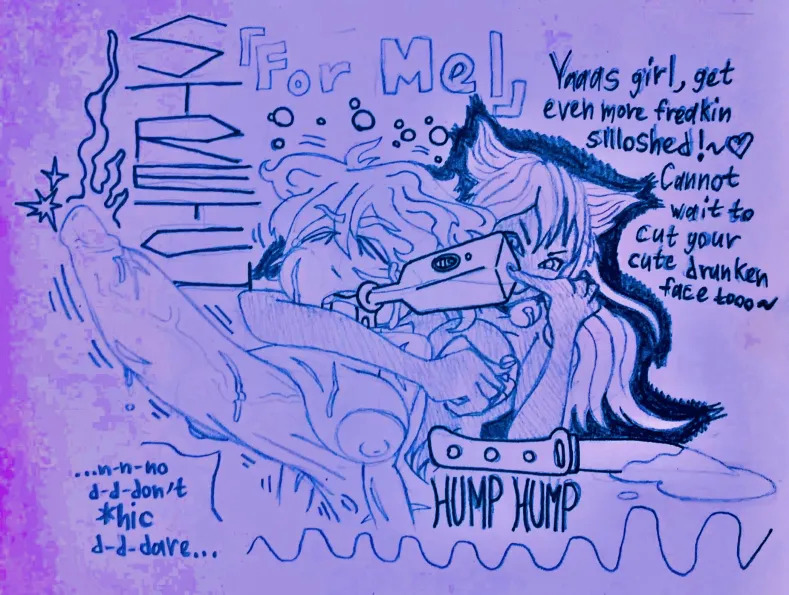 『For Me!』
Yaaas girl, get
even more freakin
slloshed!~♡
Cannot
wait to
cut your
cute drunken
face tooo~
...n-n-no
d-d-don't
*hic
d-d-dare...
HUMP HUMP